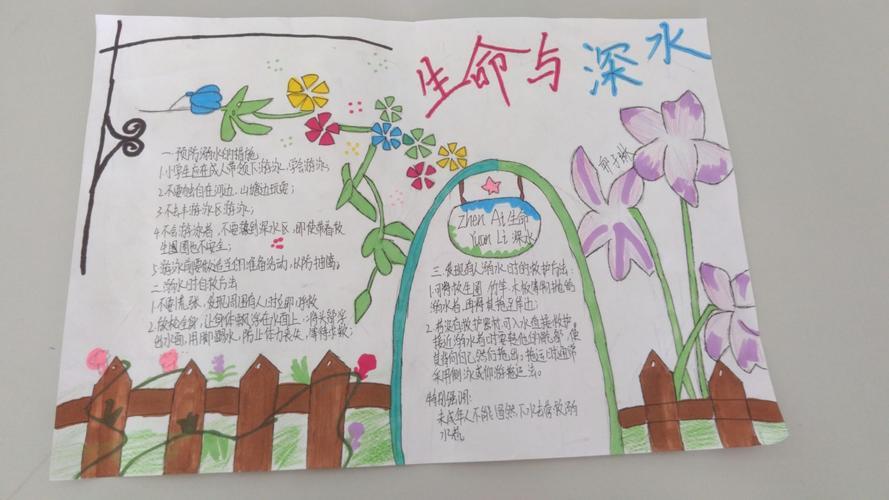 生命与深水
一.预防溺水的措施
1.小学生应在成人带领下游泳,学会游泳;
2.不要独自在河边、山塘边玩耍;
3.不去非游泳区游泳;
4.不会游泳者,不要游到深水区,即使带着救
生圈也不安全;
5.游泳前要做适当的准备活动,以防抽筋。
二.溺水时自救方法
1.不要慌张,发现周围有人时立即呼救
2.放松全身,让身体飘浮在水面上,将头部浮
出水面,用脚踢水,防止体力丧失,等待救援;
Zhen Ai 生命
Yuan Li 深水
三.发现有人溺水时的救护方法:
1.可将救生圈、竹竿、木板等抛给
溺水者,再将其拖至岸边;
2.若没有救护器材,可入水直接救护。
接近溺水者时要转动他的髋部,使
其背向自己然后拖出;拖运时通常
采用侧泳或仰泳拖运法。
特别强调:
未成年人不能冒然下水去营救溺
水者。